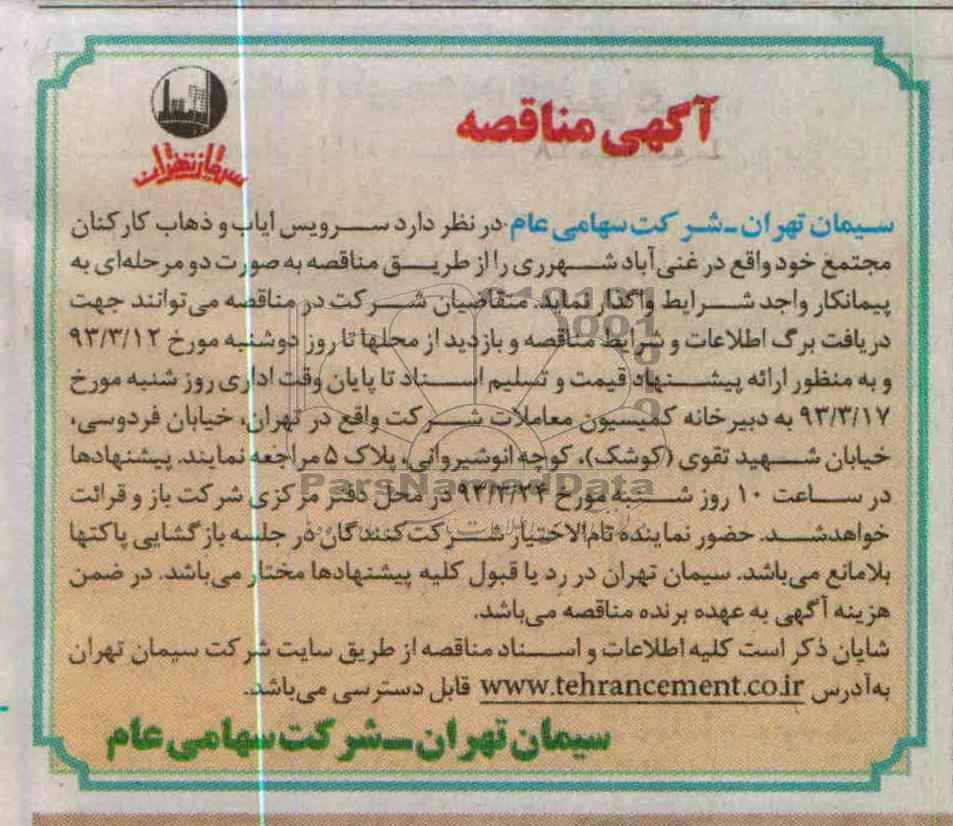 آگهی مناقصه
سیمان تهران
سیمان تهران ـ شرکت سهامی عام در نظر دارد سرویس ایاب و ذهاب کارکنان
مجتمع خود واقع در غنی‌آباد شهرری را از طریق مناقصه به صورت دو مرحله‌ای به
پیمانکار واجد شرایط واگذار نماید. متقاضیان شرکت در مناقصه می‌توانند جهت
دریافت برگ اطلاعات و شرایط مناقصه و بازدید از محلها تا روز دوشنبه مورخ ۹۳/۳/۱۲
و به منظور ارائه پیشنهاد قیمت و تسلیم اسناد تا پایان وقت اداری روز شنبه مورخ
۹۳/۳/۱۷ به دبیرخانه کمیسیون معاملات شرکت واقع در تهران، خیابان فردوسی،
خیابان شهید تقوی (کوشک)، کوچه انوشیروانی، پلاک ۵ مراجعه نمایند. پیشنهادها
در ساعت ۱۰ روز شنبه مورخ ۹۳/۳/۲۴ در محل دفتر مرکزی شرکت باز و قرائت
خواهدشد. حضور نماینده تام‌الاختیار شرکت‌کنندگان در جلسه بازگشایی پاکتها
بلامانع می‌باشد. سیمان تهران در رد یا قبول کلیه پیشنهادها مختار می‌باشد. در ضمن
هزینه آگهی به عهده برنده مناقصه می‌باشد.
شایان ذکر است کلیه اطلاعات و اسناد مناقصه از طریق سایت شرکت سیمان تهران
به‌آدرس www.tehrancement.co.ir قابل دسترسی می‌باشد.
سیمان تهران ـ شرکت سهامی عام
ParsNamadData